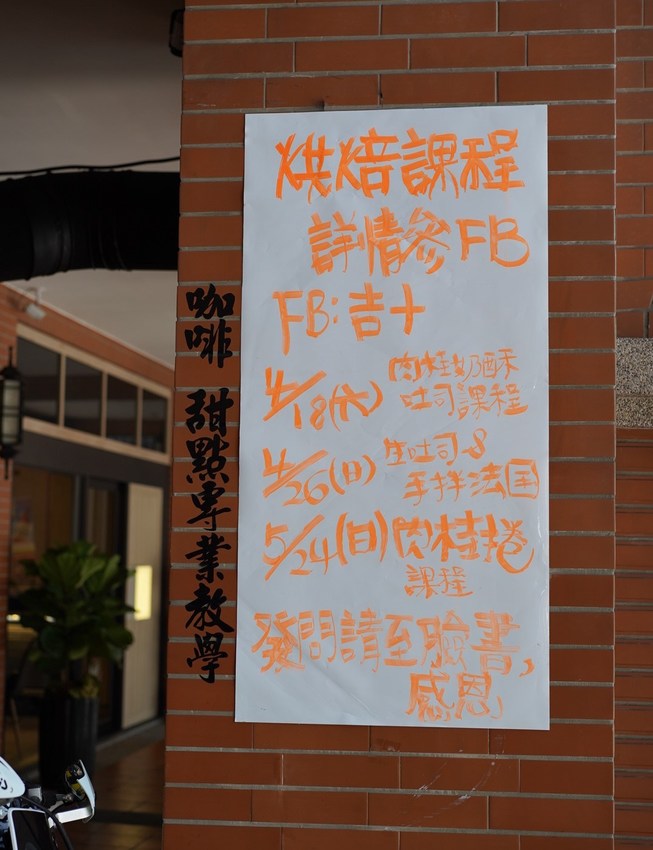 烘焙課程
詳情參FB
FB:吉十
4/18(六) 肉桂奶酥
吐司課程
4/26(日) 生吐司&
手拌法国
5/24(日) 肉桂捲
課程
發問請至臉書,
感恩」
咖啡 甜點專業教學